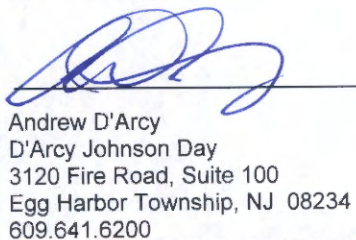 Andrew D'Arcy
D'Arcy Johnson Day
3120 Fire Road, Suite 100
Egg Harbor Township, NJ  08234
609.641.6200